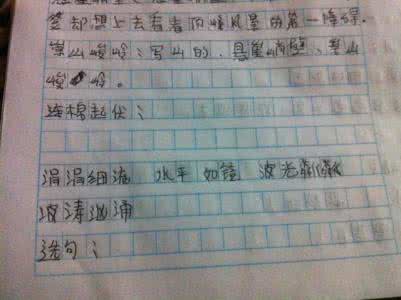 却想上去看看顶峰风景的第一障碍.
崇山峻岭：写山的.悬崖峭壁、崇山
峻岭。
连棉起伏：
涓涓细流 水平如镜 波光粼粼
波涛汹涌
选句：